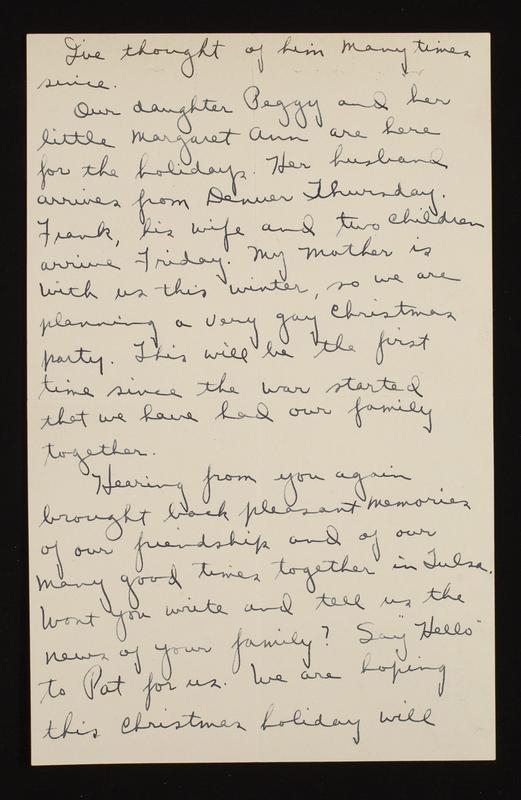 I've thought of him many times
since.
Our daughter Peggy and her
little Margaret Ann are here
for the holidays. Her husband
arrives from Denver Thursday.
Frank, his wife and two children
arrive Friday. My mother is
with us this winter, so we are
planning a very gay Christmas
party. This will be the first
time since the war started
that we have had our family
together.
Hearing from you again
brought back pleasant memories
of our friendship and of our
many good times together in Tulsa.
Wont you write and tell us the
news of your family? Say "Hello"
to Pat for us. We are hoping
this Christmas holiday will